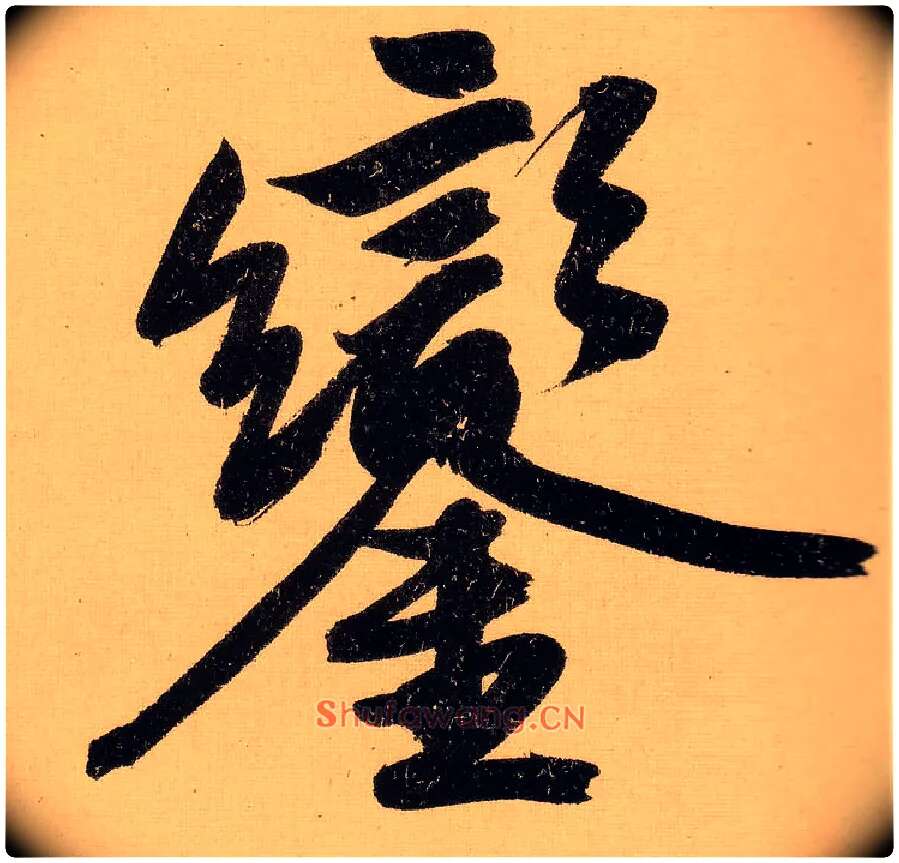 鑾
Shufawang.CN